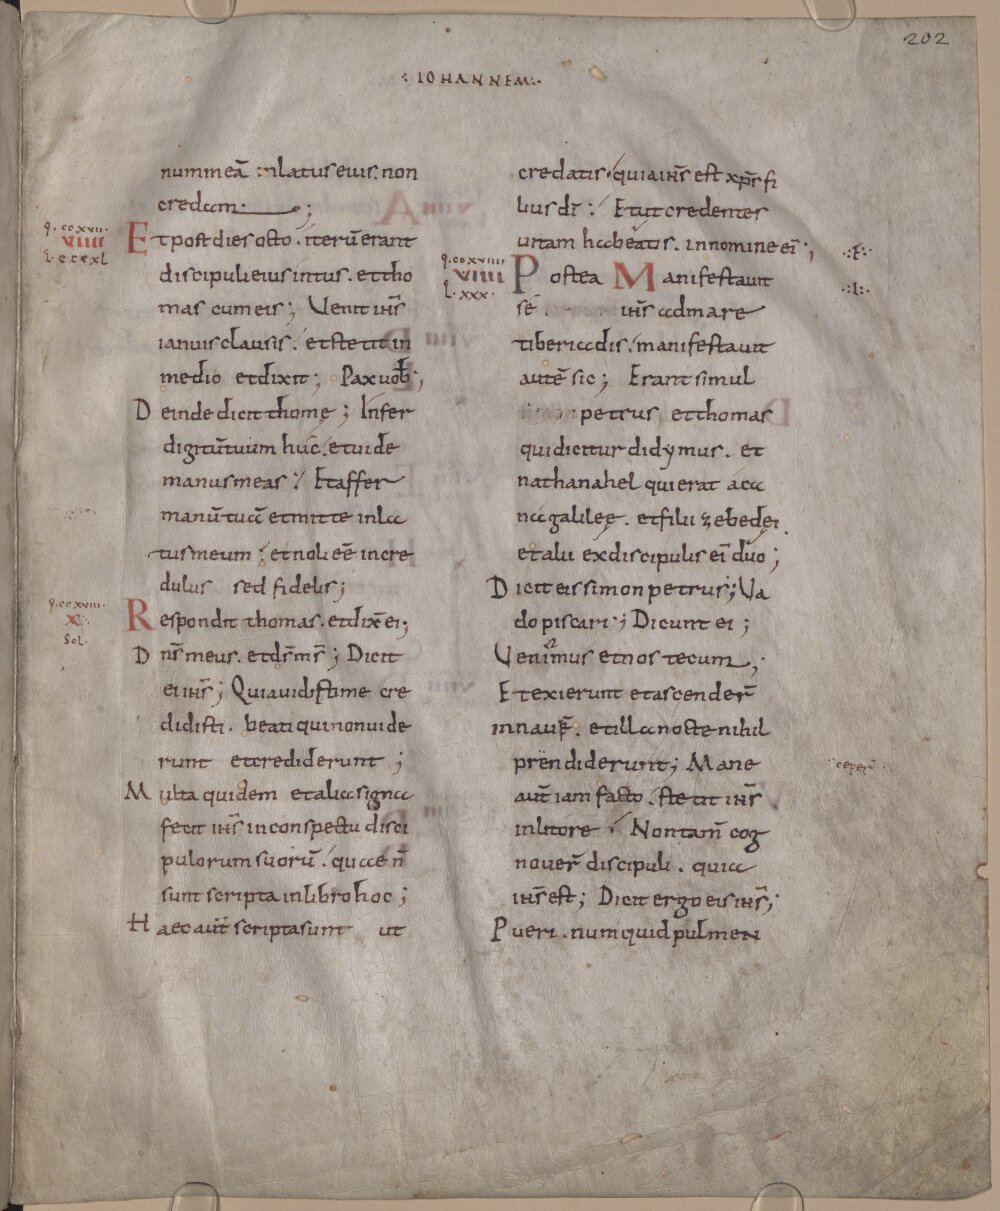 202
: IOHANNEM :
nummeā inlatus eius. non
credam ;
q. ccxvii.
VIIII
Et post dies octo. iterū erant
discipuli eius intus. et tho
mas cum eis ; Venit ihs̄
ianuis clausis. et stetit in
medio et dixit ; Pax uob̄ ;
Deinde dicit thomę ; Infer
digitū tuum huc̄. et uide
manus meas : Et affer
manū tuā et mitte in la
tus meum : et noli eē incre
dulus sed fidelis ;
q. ccxviii.
X
Sol.
Respondit thomas. et dix̄ ei ;
Dn̄s meus. et ds̄ ms̄ ; Dicit
ei ihs̄ ; Quia uidisti me cre
didisti. beati qui non uide
runt et crediderunt ;
Multa quidem et alia signa
fecit ihs̄ in conspectu disci
pulorum suorū. quae n̄
sunt scripta in libro hoc ;
Haec aut̄ scripta sunt ut
credatis. quia ihs̄ est xps̄ fi
lius dī : Et ut credentes
uitam habeatis. in nomine eī ;
q. ccxviiii
VIIII
L. xxx.
Postea Manifestauit
sē ihs̄ ad mare
tiberiadis. manifestauit
autē sic ; Erant simul
petrus et thomas
qui dicitur didymus. et
nathanahel qui erat a ca
na galileę. et filii zebedei
et alii ex discipulis eī duo ;
Dicit eis simon petrus ; Va
do piscari ; Dicunt ei ;
Venimus et nos tecum ;
Et exierunt et ascender̄
in nauē. et illa nocte nihil
prendiderunt ; Mane
ceper̄
aut̄ iam facto. stetit ihs̄
in litore : Non tam̄ cog
nouer̄ discipuli. quia
ihs̄ est ; Dicit ergo eis ihs̄ ;
Pueri. numquid pulmen